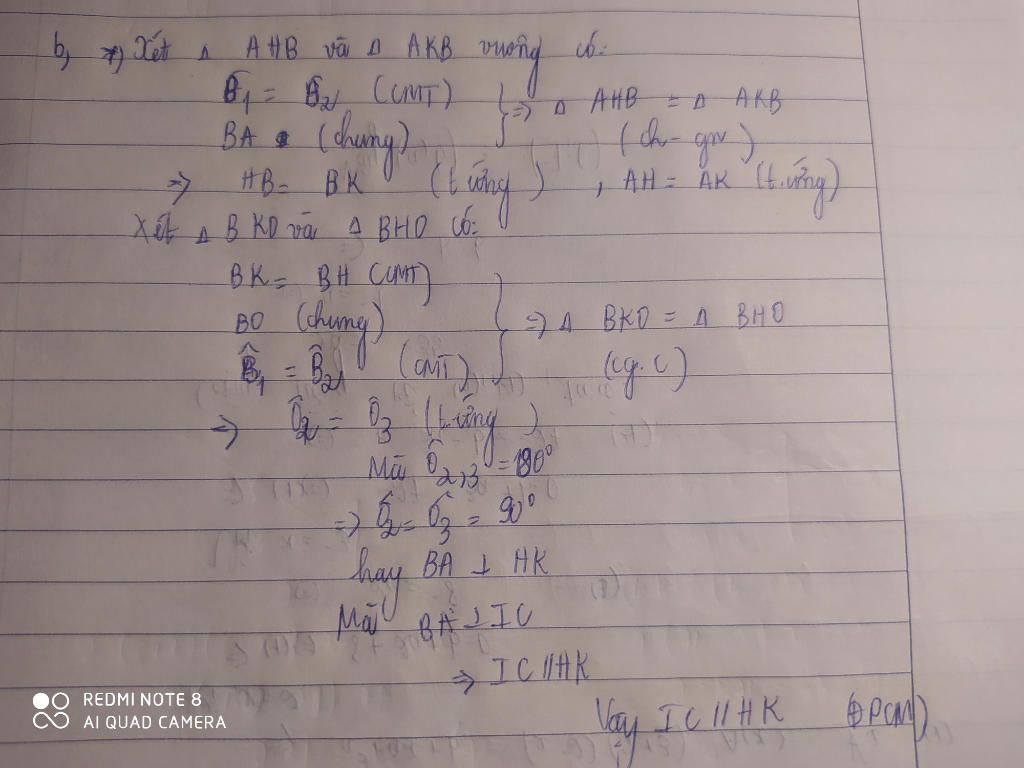 b, *) Xét Δ AHB và Δ AKB vuông có:
B̂1 = B̂2 (CMT)
BA (chung)
⇒ Δ AHB = Δ AKB
(ch - gn)
⇒ HB = BK (t.ứng) , AH = AK (t.ứng)
Xét Δ BKO và Δ BHO có:
BK = BH (CMT)
BO (chung)
B̂1 = B̂2 (CMT)
⇒ Δ BKO = Δ BHO
(cg.c)
⇒ Ô2 = Ô3 (t.ứng)
Mà Ô2,3 = 180°
⇒ Ô2 = Ô3 = 90°
hay BA ⊥ HK
Mà BA ⊥ IC
⇒ IC // HK
Vậy IC // HK (ĐPCM)
REDMI NOTE 8
AI QUAD CAMERA